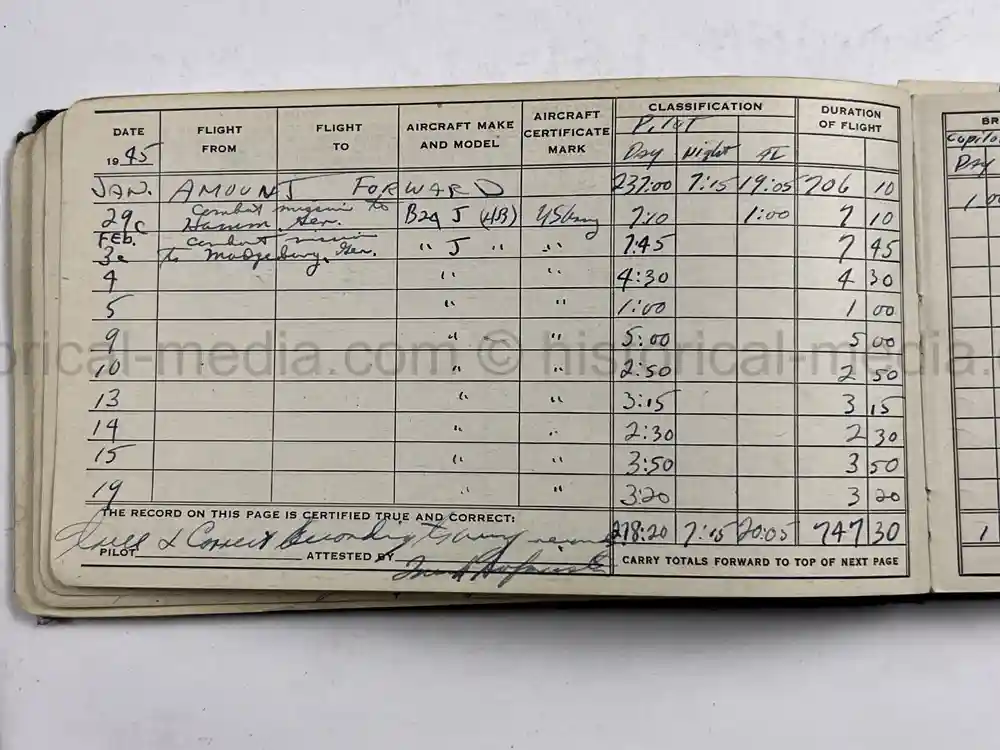 DATE FLIGHT FROM FLIGHT TO AIRCRAFT MAKE AND MODEL AIRCRAFT CERTIFICATE MARK CLASSIFICATION DURATION OF FLIGHT
1945 Pilot
Day Night
JAN. AMOUNT FORWARD 237:00 7:15 19:05 706 10
29 Combat mission to Hamm, Ger. B24 J (HB) 7:10 1:00 7 10
FEB.
3 Combat mission to Madgeburg, Ger. " J " " 7:45 7 45
4 " " 4:30 4 30
5 " " 1:00 1 00
9 " " 5:00 5 00
10 " " 2:50 2 50
13 " " 3:15 3 15
14 " " 2:30 2 30
15 " " 3:50 3 50
19 " " 3:20 3 20
THE RECORD ON THIS PAGE IS CERTIFIED TRUE AND CORRECT:
& Correct According to my 278:20 7:15 20:05 747 30
PILOT ATTESTED BY CARRY TOTALS FORWARD TO TOP OF NEXT PAGE
BR
Day
1 00
1
orical-media.com © historical-media.co